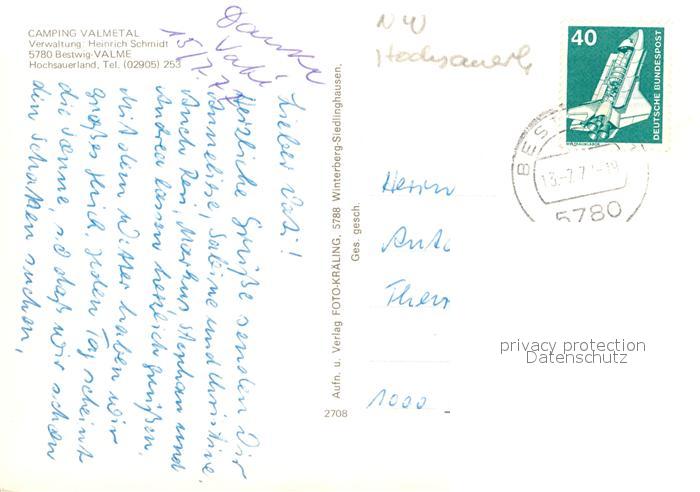 CAMPING VALMETAL
Verwaltung: Heinrich Schmidt
5780 Bestwig-VALME
Hochsauerland, Tel. (02905) 253
Danke
Vati
15/7.77
Lieber Vati!
Herzliche Grüße senden Dir
Annelise, Sabine und Christine.
Auch Resi, Markus Stephan und
Andrea lassen herzlich grüßen.
Mit dem Wetter haben wir
großes Glück. Jeden Tag scheint
die Sonne, so daß wir schon
den Schatten suchen.
2708
Aufn. u. Verlag FOTO-KRÄLING, 5788 Winterberg-Siedlinghausen,
Ges. gesch.
NW
Hochsauerl
40
DEUTSCHE BUNDESPOST
BEST
13.-7.7
-19
5780
Herrn
1000
privacy protection
Datenschutz